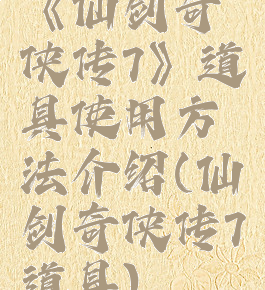 《仙剑奇
侠传7》道
具使用方
法介绍(仙
剑奇侠传7
道具)